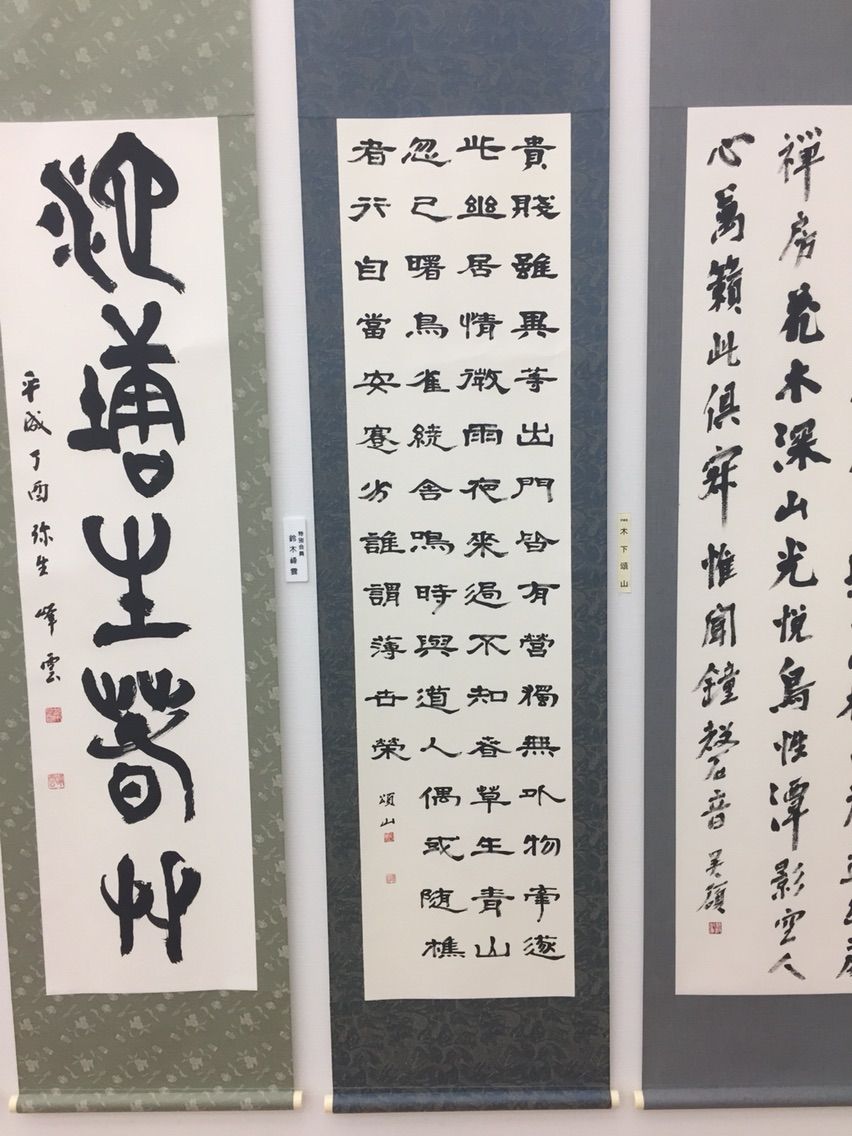 禪房花木深山光悦鳥性潭影空人
心萬籟此俱寂惟聞鐘磬音
木下頌山
貴賤雖異等出門皆有營獨無外物牽遂
此幽居情微雨夜來過不知春草生青山
忽已曙鳥雀繞舎鳴時與道人偶或随樵
者行自當安蹇劣誰謂薄世榮
頌山
鈴木峰雲
池塘生春艸
平成丁酉弥生 峰雲